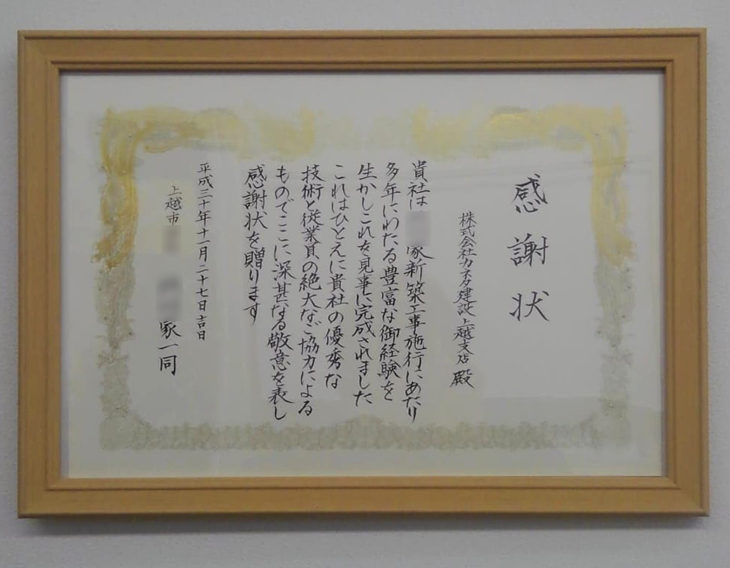 感謝状
株式会社カネタ建設上越支店 殿
貴社は 家新築工事施行にあたり
多年にわたる豊富な御経験を
生かしこれを見事に完成されました
これはひとえに貴社の優秀な
技術と従業員の絶大なご協力による
ものでここに深甚なる敬意を表し
感謝状を贈ります
平成三十年十一月二十七日吉日
上越市
家一同